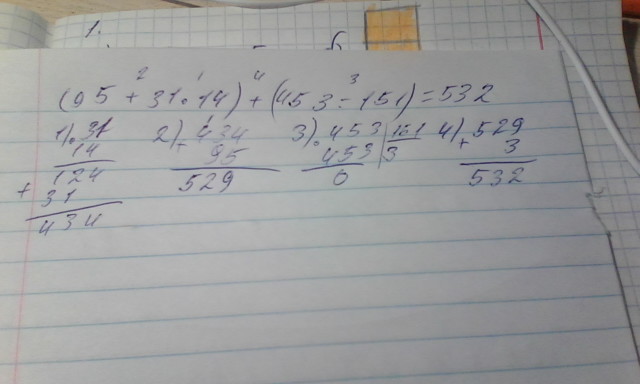 1.
2 1 4 3
(95 + 31 · 14) + (453 - 151) = 532
1) · 31 2) + 434 3) · 453 | 151 4) + 529
14 95 453 3 3
124 529 0 532
+ 31
434